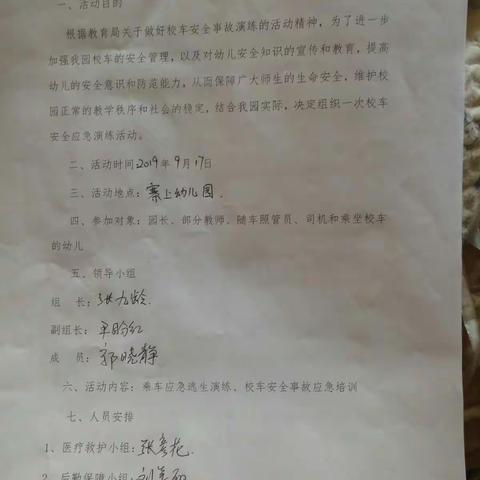 一、活动目的
根据教育局关于做好校车安全事故演练的活动精神，为了进一步
加强我园校车的安全管理，以及对幼儿安全知识的宣传和教育，提高
幼儿的安全意识和防范能力，从而保障广大师生的生命安全，维护校
园正常的教学秩序和社会的稳定，结合我园实际，决定组织一次校车
安全应急演练活动。
二、活动时间2019年9月17日
三、活动地点：寨上幼儿园.
四、参加对象：园长、部分教师、随车照管员、司机和乘坐校车
的幼儿
五、领导小组
组 长：张九龄.
副组长：
成 员：郭晓静
六、活动内容：乘车应急逃生演练、校车安全事故应急培训
七、人员安排
1、医疗救护小组：张
2、后勤保障小组：刘